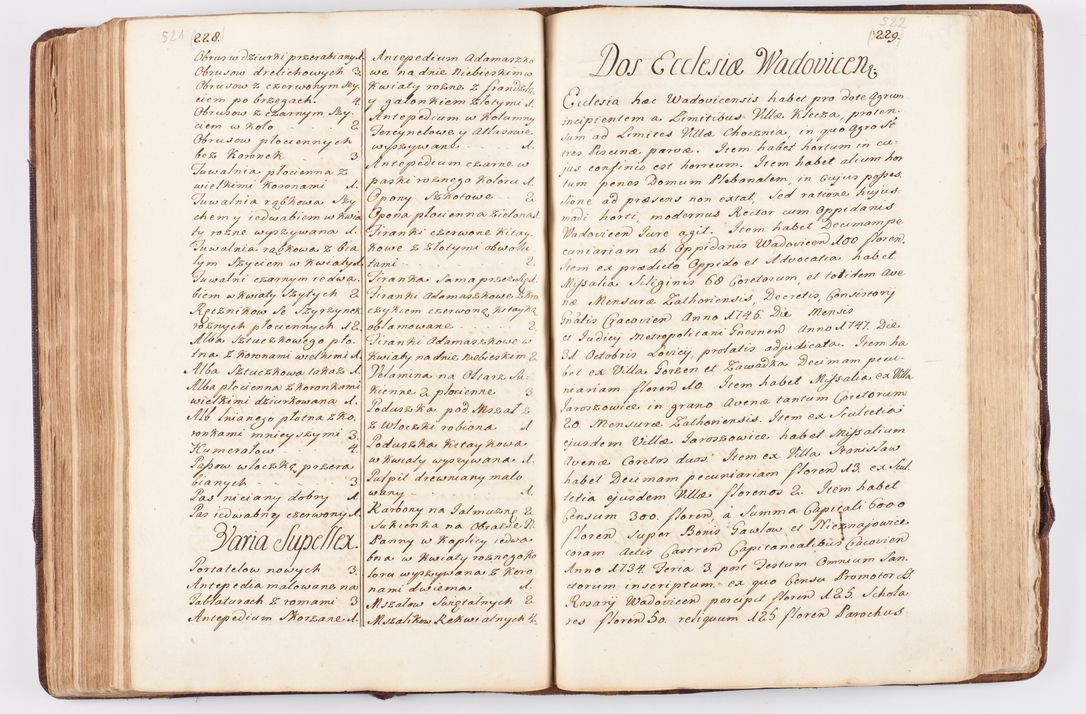 521 228.
Obrus w dziurki przerabiany 1.
Obrusow drelichowych 3.
Obrusow z czerwonym szy-
ciem po brzegach. 4
Obrusow z czarnym szy-
ciem w koło 2.
Obrusow płociennych
bez koronek 3
Tuwalnia płocienna z
wielkimi koronami 1.
Tuwalnia rąbkowa szy-
chem y iedwabiem w kwia
ty rożne wyszywana 1.
Tuwalnia rąbkowa z bia
łym szyciem w kwiaty 1.
Tuwalni czarnym iedwa-
biem w kwiaty szytych 2.
Ręcznikow
rożnych płociennych 12.
Alba sztuczkowego pło-
tna z koronami wielkimi 1.
Alba sztuczkowa takaż 1.
Alba płocienna z koronkami
wielkimi dziurkowana 1.
Alb lnianego płotna z ko-
ronkami mnieyszymi 3.
Humerałow 4.
Pasow włoczkę przera
bianych 3
Pas niciany dobry 1.
Pas iedwabny czerwony 1.
Varia Supellex.
Portatelow nowych 3.
Antepedia malowane na
Tablaturach z romami 3
Antepedium skorzane 1.
Antepedium Adamaszko
we na dnie Niebieskim w
kwiaty rożne z frandzlą
y galonkiem złotym 1.
Antepedium w kolumny
Tercynelowe y Atłasowe
wyszywane 1.
Antepedium czarne w
paski rożnego koloru 1.
Opony Szkotowe 2.
Opona płocienna zielona 1.
Firanki czerwone kitay
kowe z złotymi obwodu
tami 2.
Firanka sama przez się 1.
Firanki Adamaszkowe z kru
czykiem czerwoną kitayką
obłamowane 2.
Firanki Adamaszkowe w
kwiaty na dnie niebieskim 2.
Velamina na Ołtarz su-
kienne 2 płocienne 3.
Poduszka pod Mszał z
z włoczki robiona 1.
Poduszka kitaykowa
w kwiaty wyszywana 1.
Pulpit drewniany malo
wany 1.
Karbony na Jałmużnę 2.
Sukienka na Obrazie N.
Panny w Kaplicy iedwa
bna w kwiaty rożnego ko
loru wyszywana z koro
nami dwiema
Mszałow świętalnych 2.
Mszalikow Rekwialnych 4.
522 229.
Dos Ecclesiæ Wadovicen.
Ecclesia hæc Wadovicensis habet pro dote Agrum
incipientem a Limitibus Villæ Klecza, proten-
sum ad Limites Villæ Chocznia, in quo Agro st
tres Piscinæ parvæ. Item habet hortum in cu-
jus confinio est horreum. Item habet alium hor
tum penes Domum Plebanalem, in cujus posses
sione ad præsens non extat, sed ratione hujus-
modi horti, modernus Rector cum Oppidanis
Wadovicen Jure agit. Item habet Decimam pe
cuniariam ab Oppidanis Wadovicen 100 floren.
Item ex prædicto Oppido et Advocatia habet
Missalia Siliginis 68 Coretorum, et totidem Ave
næ Mensuræ Zathoriensis, Decretis, Consistorij
Gnatis Cracovien Anno 1746. Die Mensis
et Judicij Metropolitani Gnesnen Anno 1747. Die
31 Octobris Lovicij, prolatis adjudicata. Item ha
bet ex Villa Gorzen et Zawadka Decimam pecu
niariam floren 10. Item habet Missalia ex Villa
Jaroszowice in grano Avenæ tantum Coretorum
20. Mensuræ Zathoriensis. Item ex Scultetia
ejusdem Villæ Jaroszowice habet Missalium
Avenæ Coretos duos. Item ex Villa Stanisław
habet Decimam pecuniariam floren 13. ex Scul
tetia ejusdem Villæ florenos 2. Item habet
Censum 300. floren à Summa Capitali 6000
floren super Bonis Gawlow et Nieznajowice
coram Actis Castren Capitanealibus Cracovien
Anno 1734. Feria 3. post Festum Omnium San-
ctorum inscriptum: ex quo Censu Promotor S.
Rosarij Wadovicen percipit floren 125. Schola
res floren 50. reliquum 125 floren Parochus